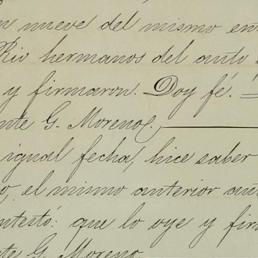 n nueve del mismo en
Rio hermanos del auto
y firmaron. Doy fé.
nte G. Moreno.
igual fecha, hice saber
o, el mismo anterior au
ntestó: que lo oye y fir
te G. Moreno